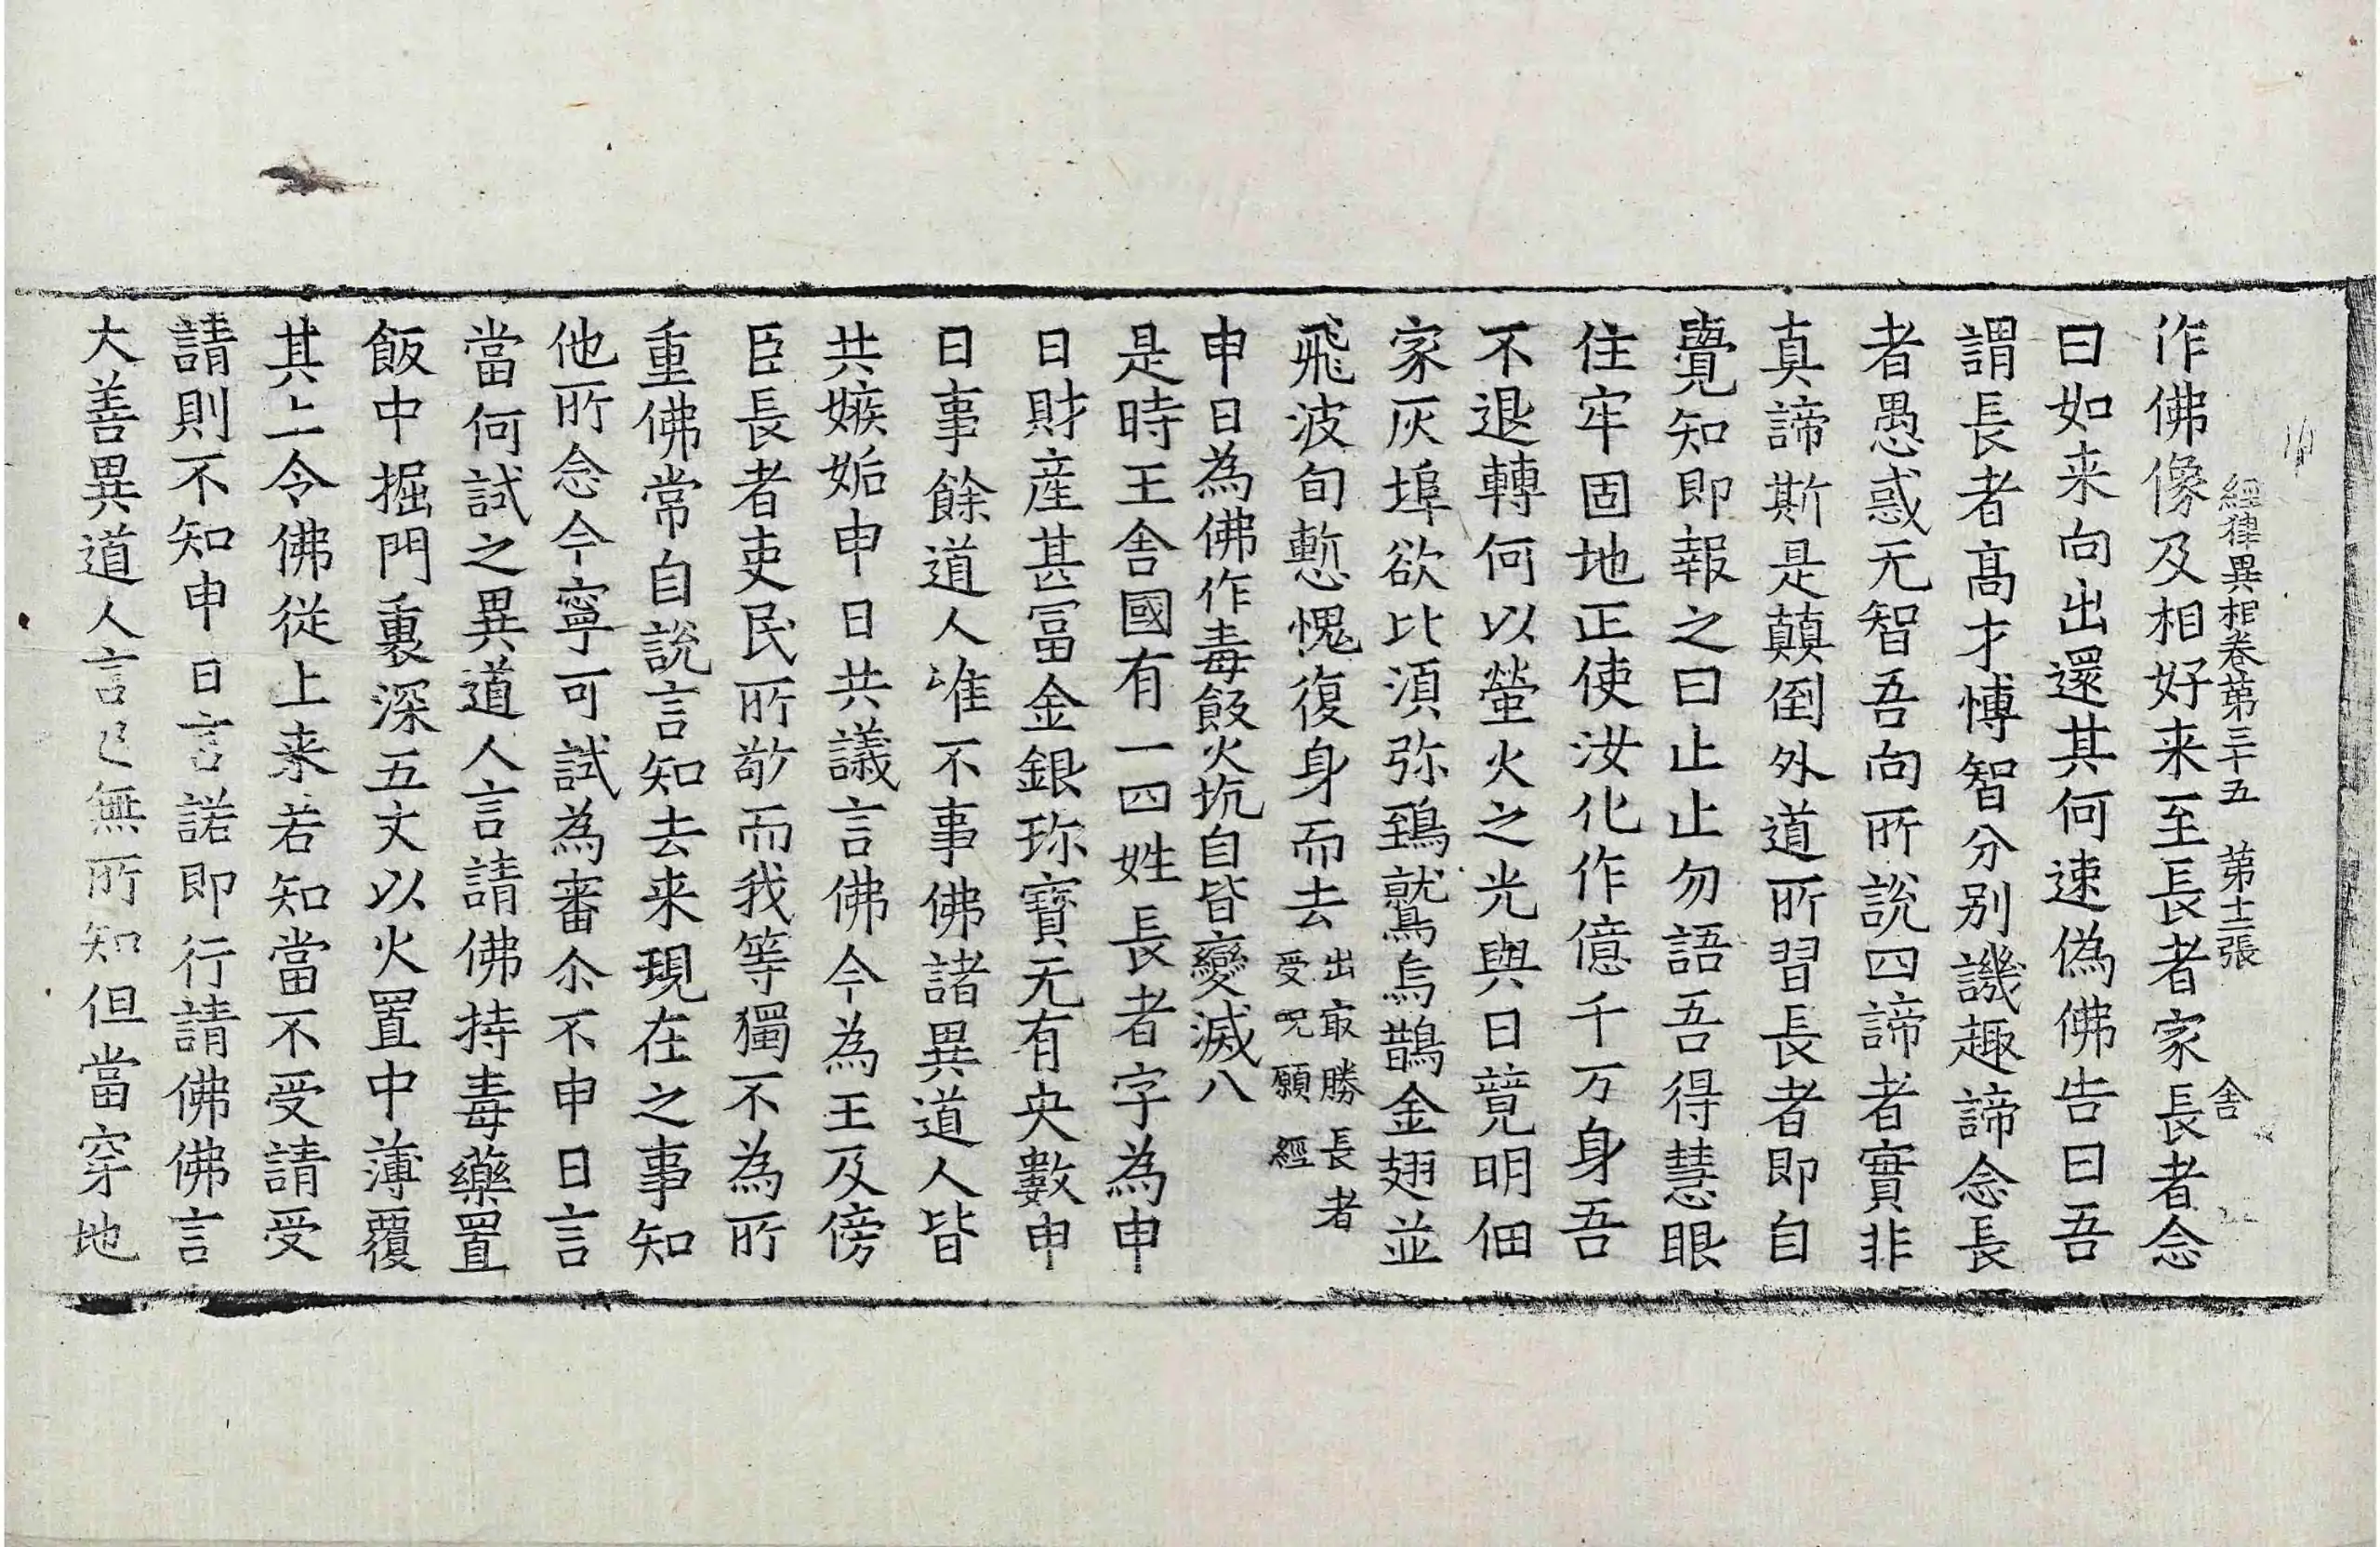 經律異相卷第三十五　第十二張　舍
作佛像及相好来至長者家長者念
曰如来向出還其何速偽佛告曰吾
謂長者高才博智分别譏趣諦念長
者愚惑无智吾向所說四諦者實非
真諦斯是顛倒外道所習長者即自
覺知即報之曰止止勿語吾得慧眼
住牢固地正使汝化作億千万身吾
不退轉何以螢火之光與日競明佃
家灰埠欲比須弥鵄鷲烏鵲金翅並
飛波旬慙愧復身而去出最勝長者受呪願經
申日為佛作毒飯火坑自皆變滅八
是時王舍國有一四姓長者字為申
日財産甚冨金銀珎寶无有央數申
日事餘道人唯不事佛諸異道人皆
共嫉妬申日共議言佛今為王及傍
臣長者吏民所敬而我等獨不為所
重佛常自說言知去来現在之事知
他所念今寧可試為審尒不申日言
當何試之異道人言請佛持毒藥置
飯中掘門裏深五丈以火置中薄覆
其上令佛從上来若知當不受請受
請則不知申日言諾即行請佛佛言
大善異道人言已無所知但當穿地